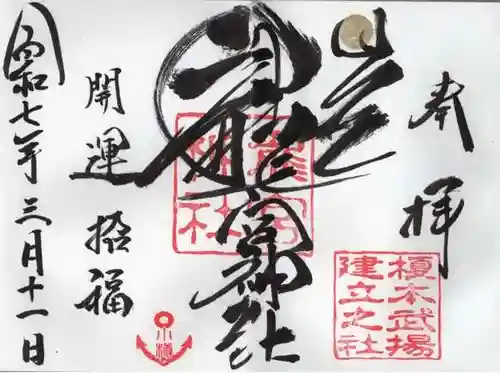 奉拝
龍宮神社
龍宮神社
榎本武揚
建立之社
開運招福
小樽
令和七年三月十一日